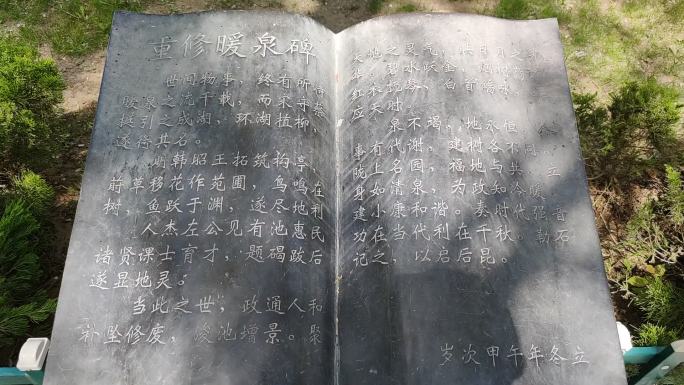 重修暖泉碑
世间物事，终有所待
暖泉之流千载，而末寻搭
提引之成湖，环湖插柳，
遂得其名。
明韩昭王拓筑构亭，
前草移花作苑圃，鸟鸣在
树，鱼跃于渊，遂尽地利
人杰左公见有池惠民
诸贤课士育才，题碣跋后
遂显地灵。
当此之世，政通人和
补坠修废，浚池增景。聚
天地之灵气，
华，碧水跃金，
红衣揽
应天时。
泉不竭，地永恒，
事有代谢，建树各不同，
陇上名园，福地与共，立
身如清泉，为政知冷暖，
建小康和谐。奏时代强音
功在当代利在千秋。勒石
记之，以启后昆。
岁次甲午年冬立